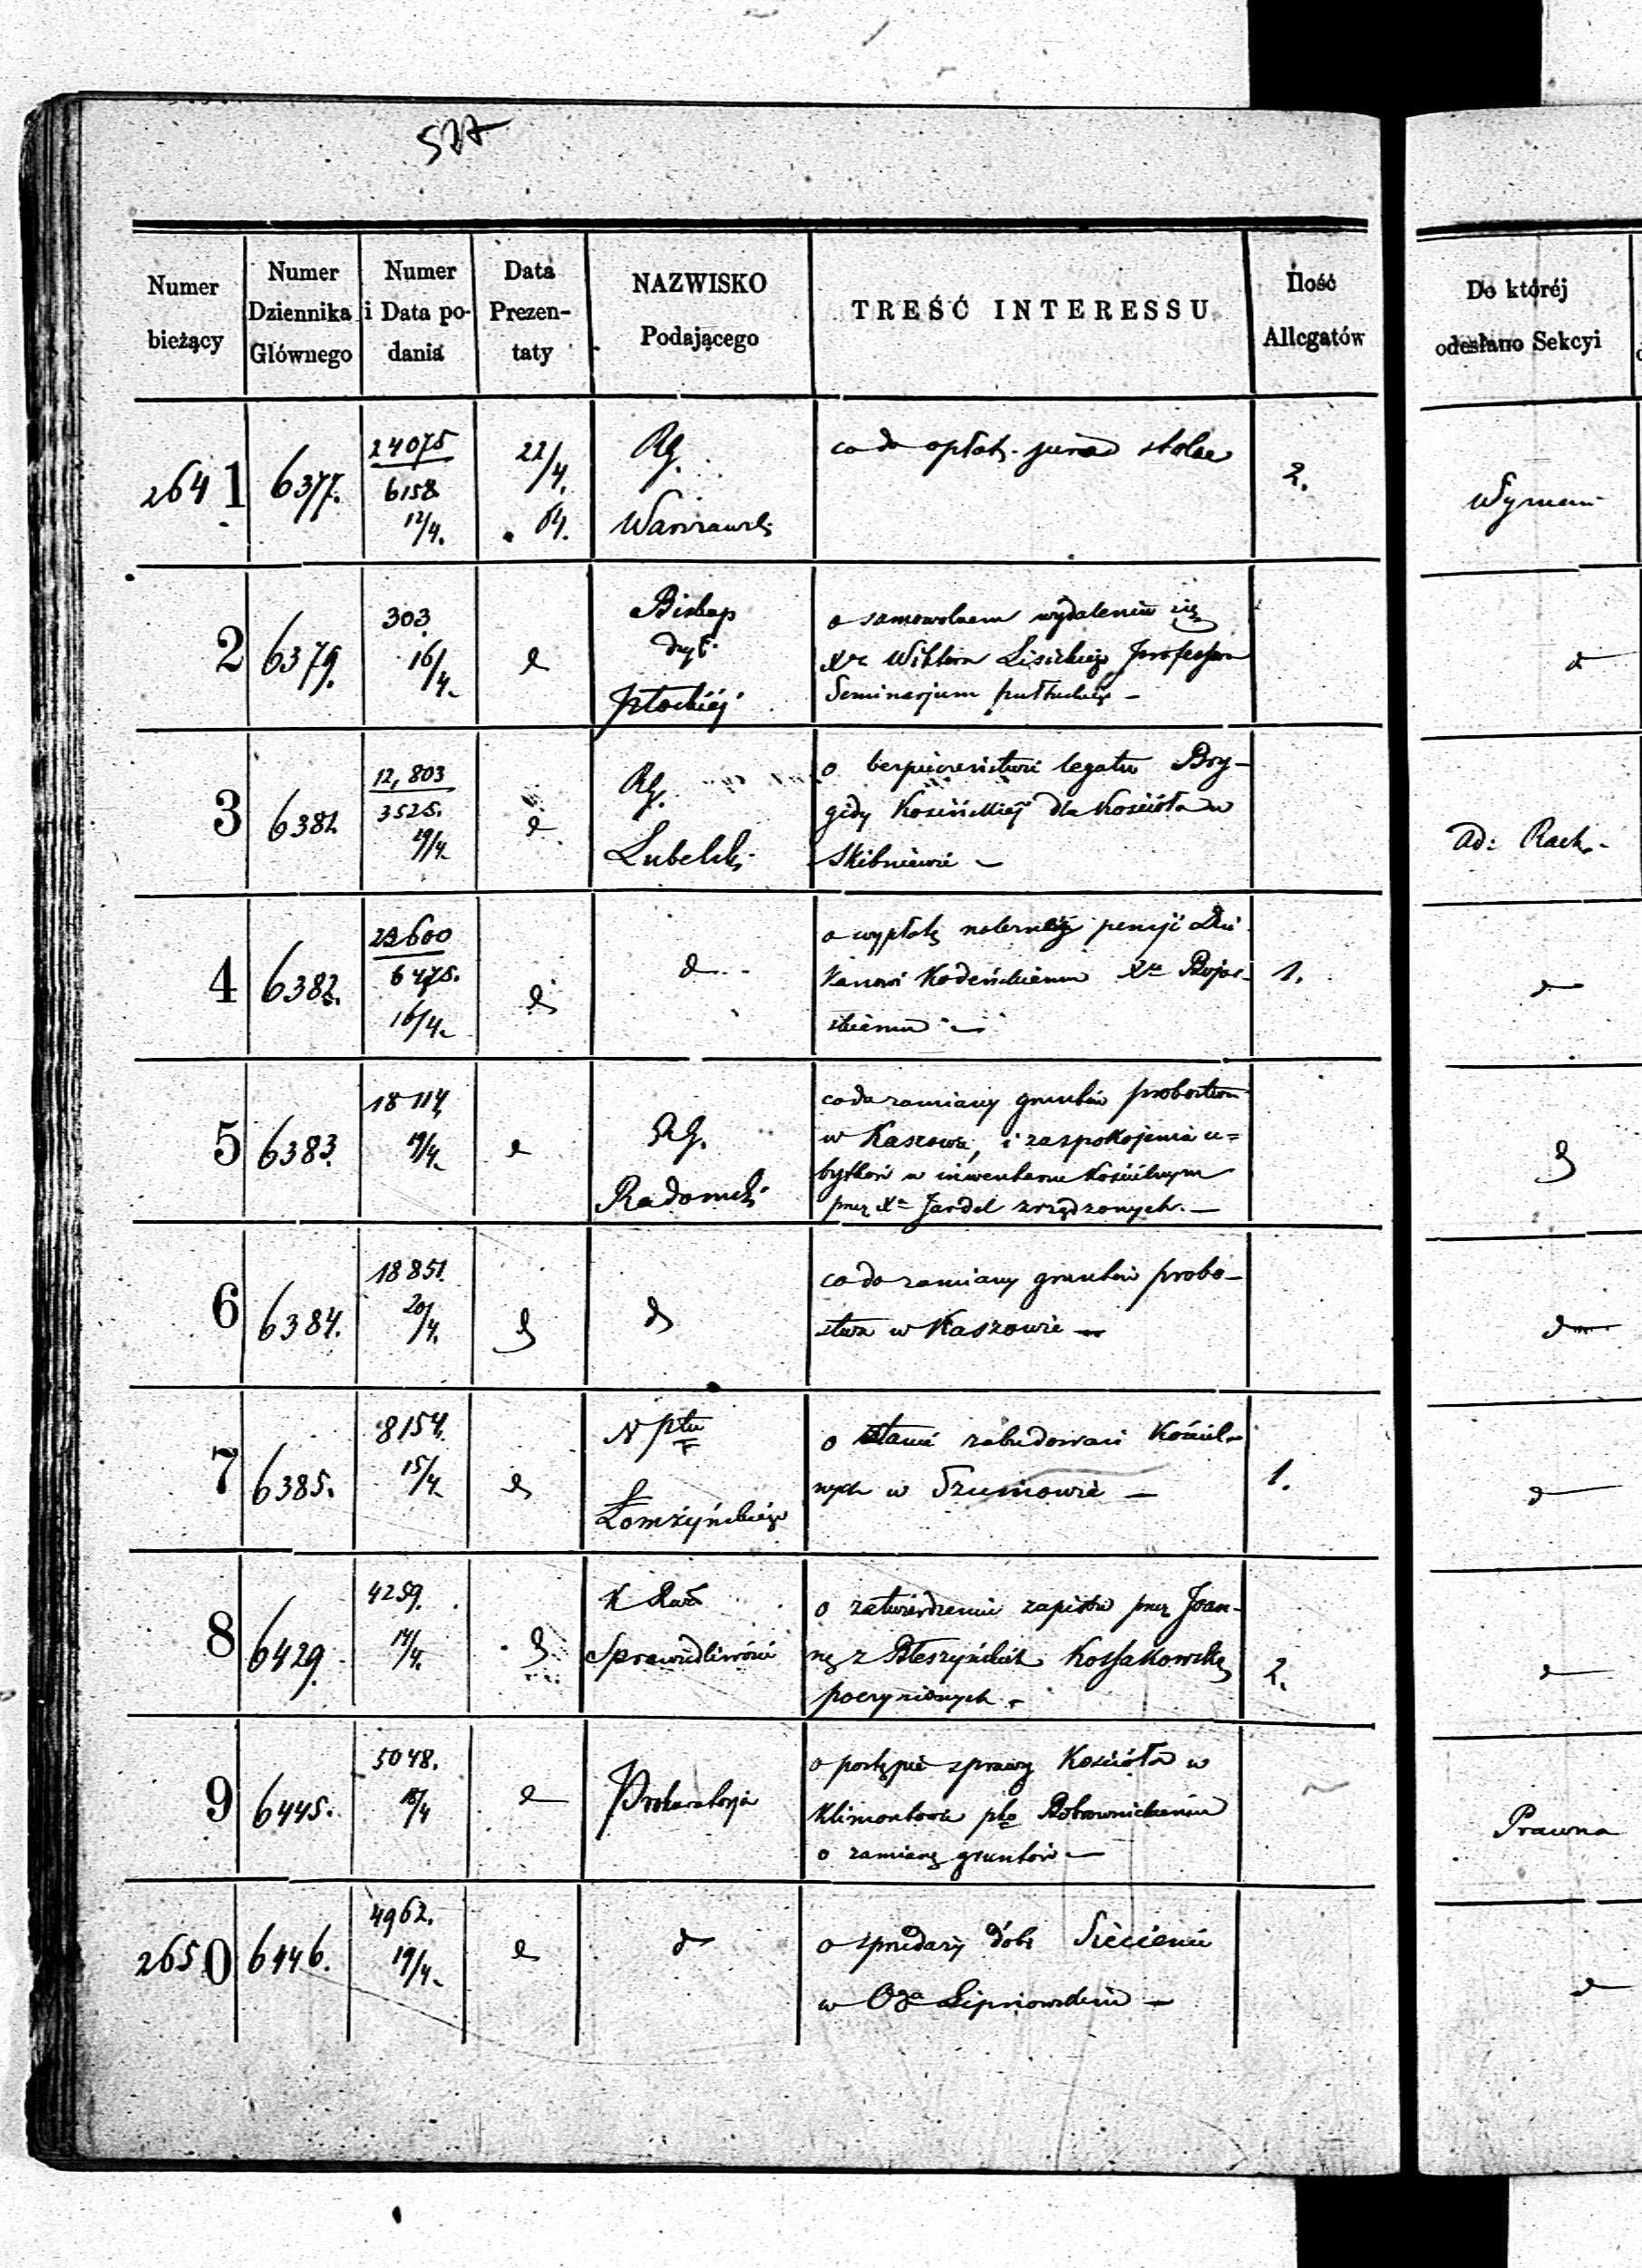 577
Numer bieżący
Numer Dziennika Głównego
Numer i Data podania
Data Prezentaty
NAZWISKO Podającego
TREŚĆ INTERESSU
Ilość Allegatów
Do któréj odesłano Sekcyi
2641
6377.
24075
6158
12/4.
22/4.
64.
RG.
Warszawski
co do opłat jura stolae
2.
Wyznań
2
6379.
303
16/4.
d
Biskup
dyc.
Płockiéj
o samowolnem wydaleniu się
Xdz Wiktora Lisickiego Professora
Seminarjum pułtuskiego —
d
3
6381.
12,803
3525.
19/4.
d
RG.
Lubelski
o bezpieczeństwie legatu Bry-
gidy Kosińskiéj dla Kościoła w
Skibniewie —
Ad: Rach.
4
6382.
6475.
16/4.
d
d
o wypłatę pensji Dzie
kanowi Kodeńskiemu Xdz
skiemu —
1.
d
5
6383.
18114.
19/4.
d
RG.
Radomski
co do zamiany gruntów probostwa
w Kaszowie, i zaspokojenia u=
bytków w inwentarzu kościelnym
przez Xa Jardel zrządzonych. —
d
6
6384.
18851.
20/4.
d
d
co do zamiany gruntów probo-
stwa w Kaszowie —
d
7
6385.
8154.
15/4.
d
N Ptu
Łomżyńskiego
o stanie zabudowań Kościel-
nych w Szumowie —
1.
d
8
6429.
4259.
14/4.
d
K Rząd
Sprawiedliwości
o zatwierdzenie zapisów przez Joan-
nę z Bleszyńskich Kossakowską
poczynionych —
2.
d
9
6445.
5048.
18/4
d
Prokuratorja
o postępie sprawy Kościoła w
Klimontowie pko Bobrownickiemu
o zamianę gruntów —
Prawna
2650
6446.
4962.
19/4.
d
d
o sprzedaży dóbr Siecienia
w Ogu Lipnowskim —
d